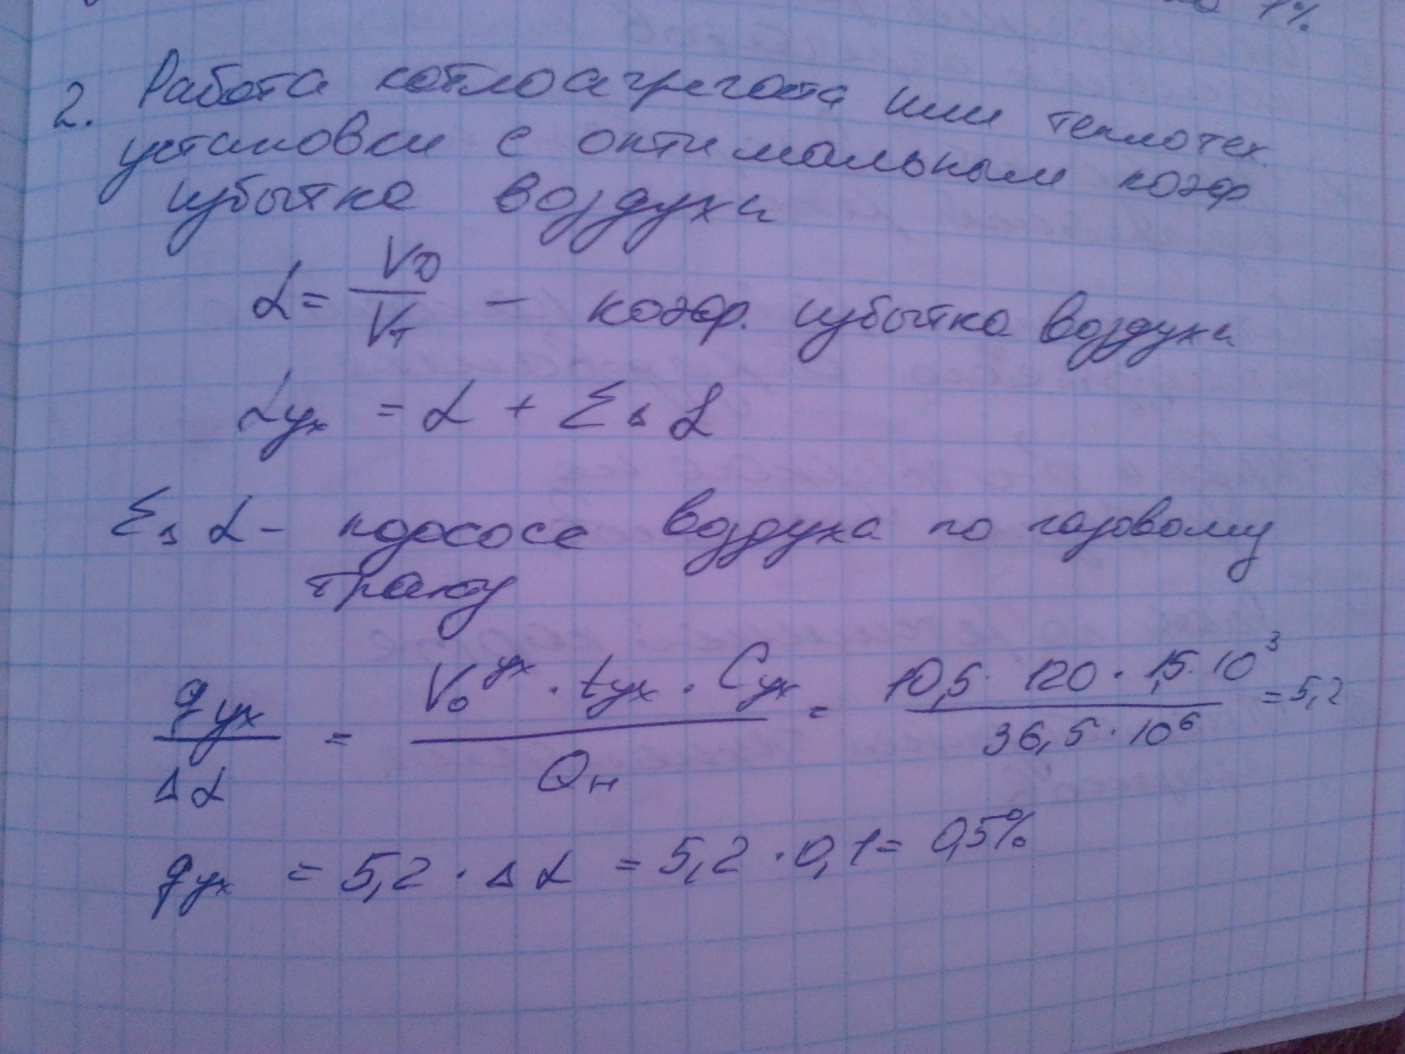 1%
2. Работа котлоагрегата или теплотех
установки с оптимальным коэф
избытка воздуха
α = Vд / Vт – коэф. избытка воздуха
αух = α + ΣΔα
ΣΔα – подсосе воздуха по газовому
тракту
qух / Δα = V₀ух · tух · Cух / Qн = 10,5 · 120 · 1,5 · 10³ / 36,5 · 10⁶ = 5,2
qух = 5,2 · Δα = 5,2 · 0,1 = 0,5%